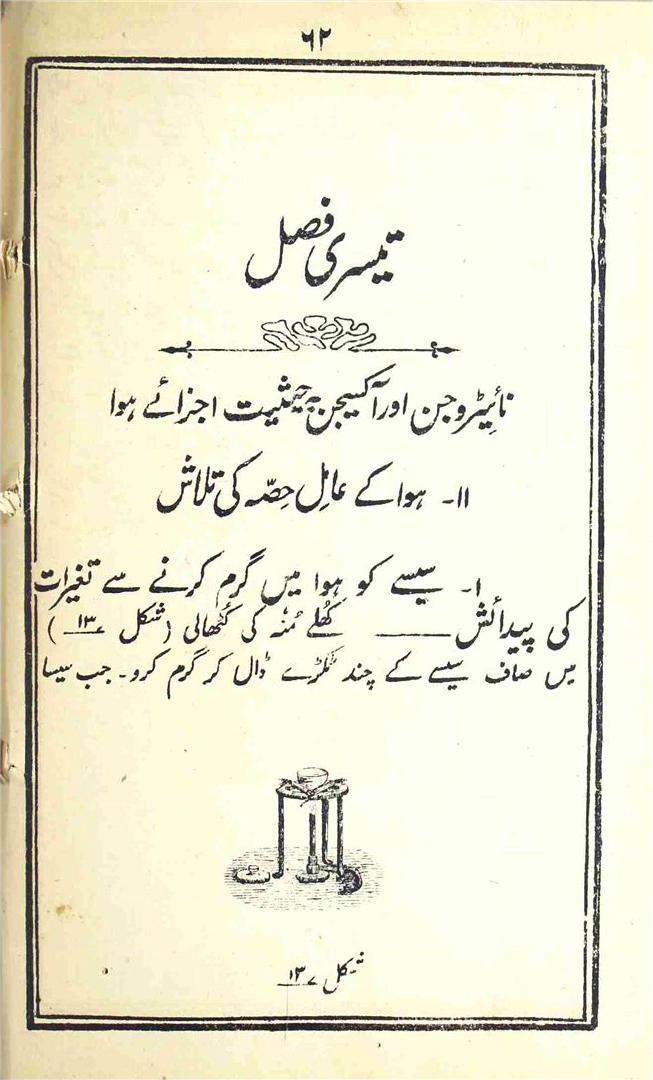 ۶۲
تیسری فصل
نائیٹروجن اور آکسیجن بہ حیثیت اجزائے ہوا
۱۱۔ ہوا کے عامِل حِصّہ کی تلاش
۱۔ سیسے کو ہوا میں گرم کرنے سے تغیرات
کی پیدائش ــــــ کُھلے مُنہ کی کُٹھالی (شکل ۱۳)
میں صاف سیسے کے چند ٹکڑے ڈال کر گرم کرو۔ جب سیسا
شکل ۱۳